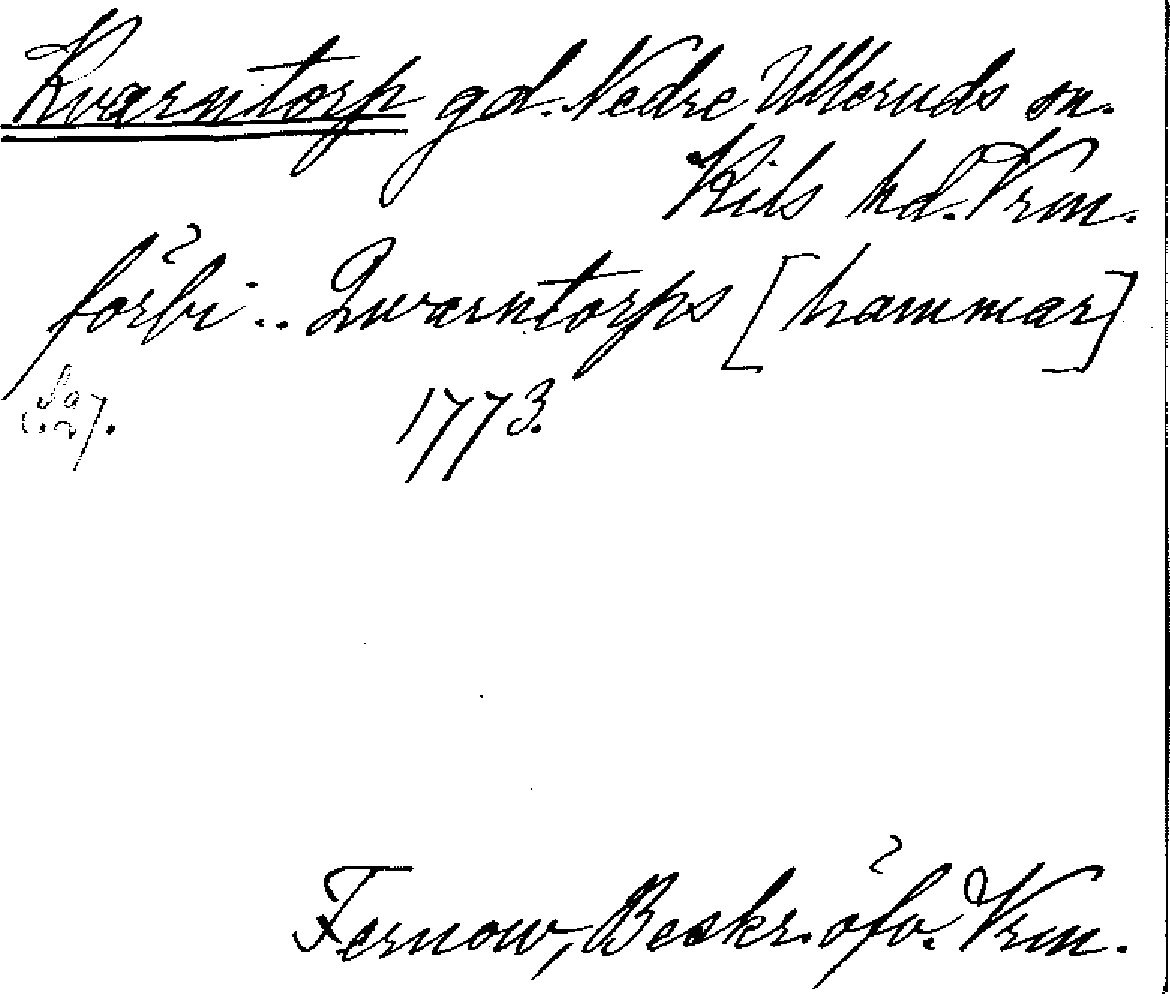 Kvarntorp gd. Nedre Ulleruds sn.
Kils hd. Vrm.
förbi .. Qvarntorps [hammar]
1773.
Fernow, Beskr. öfv. Vrm.